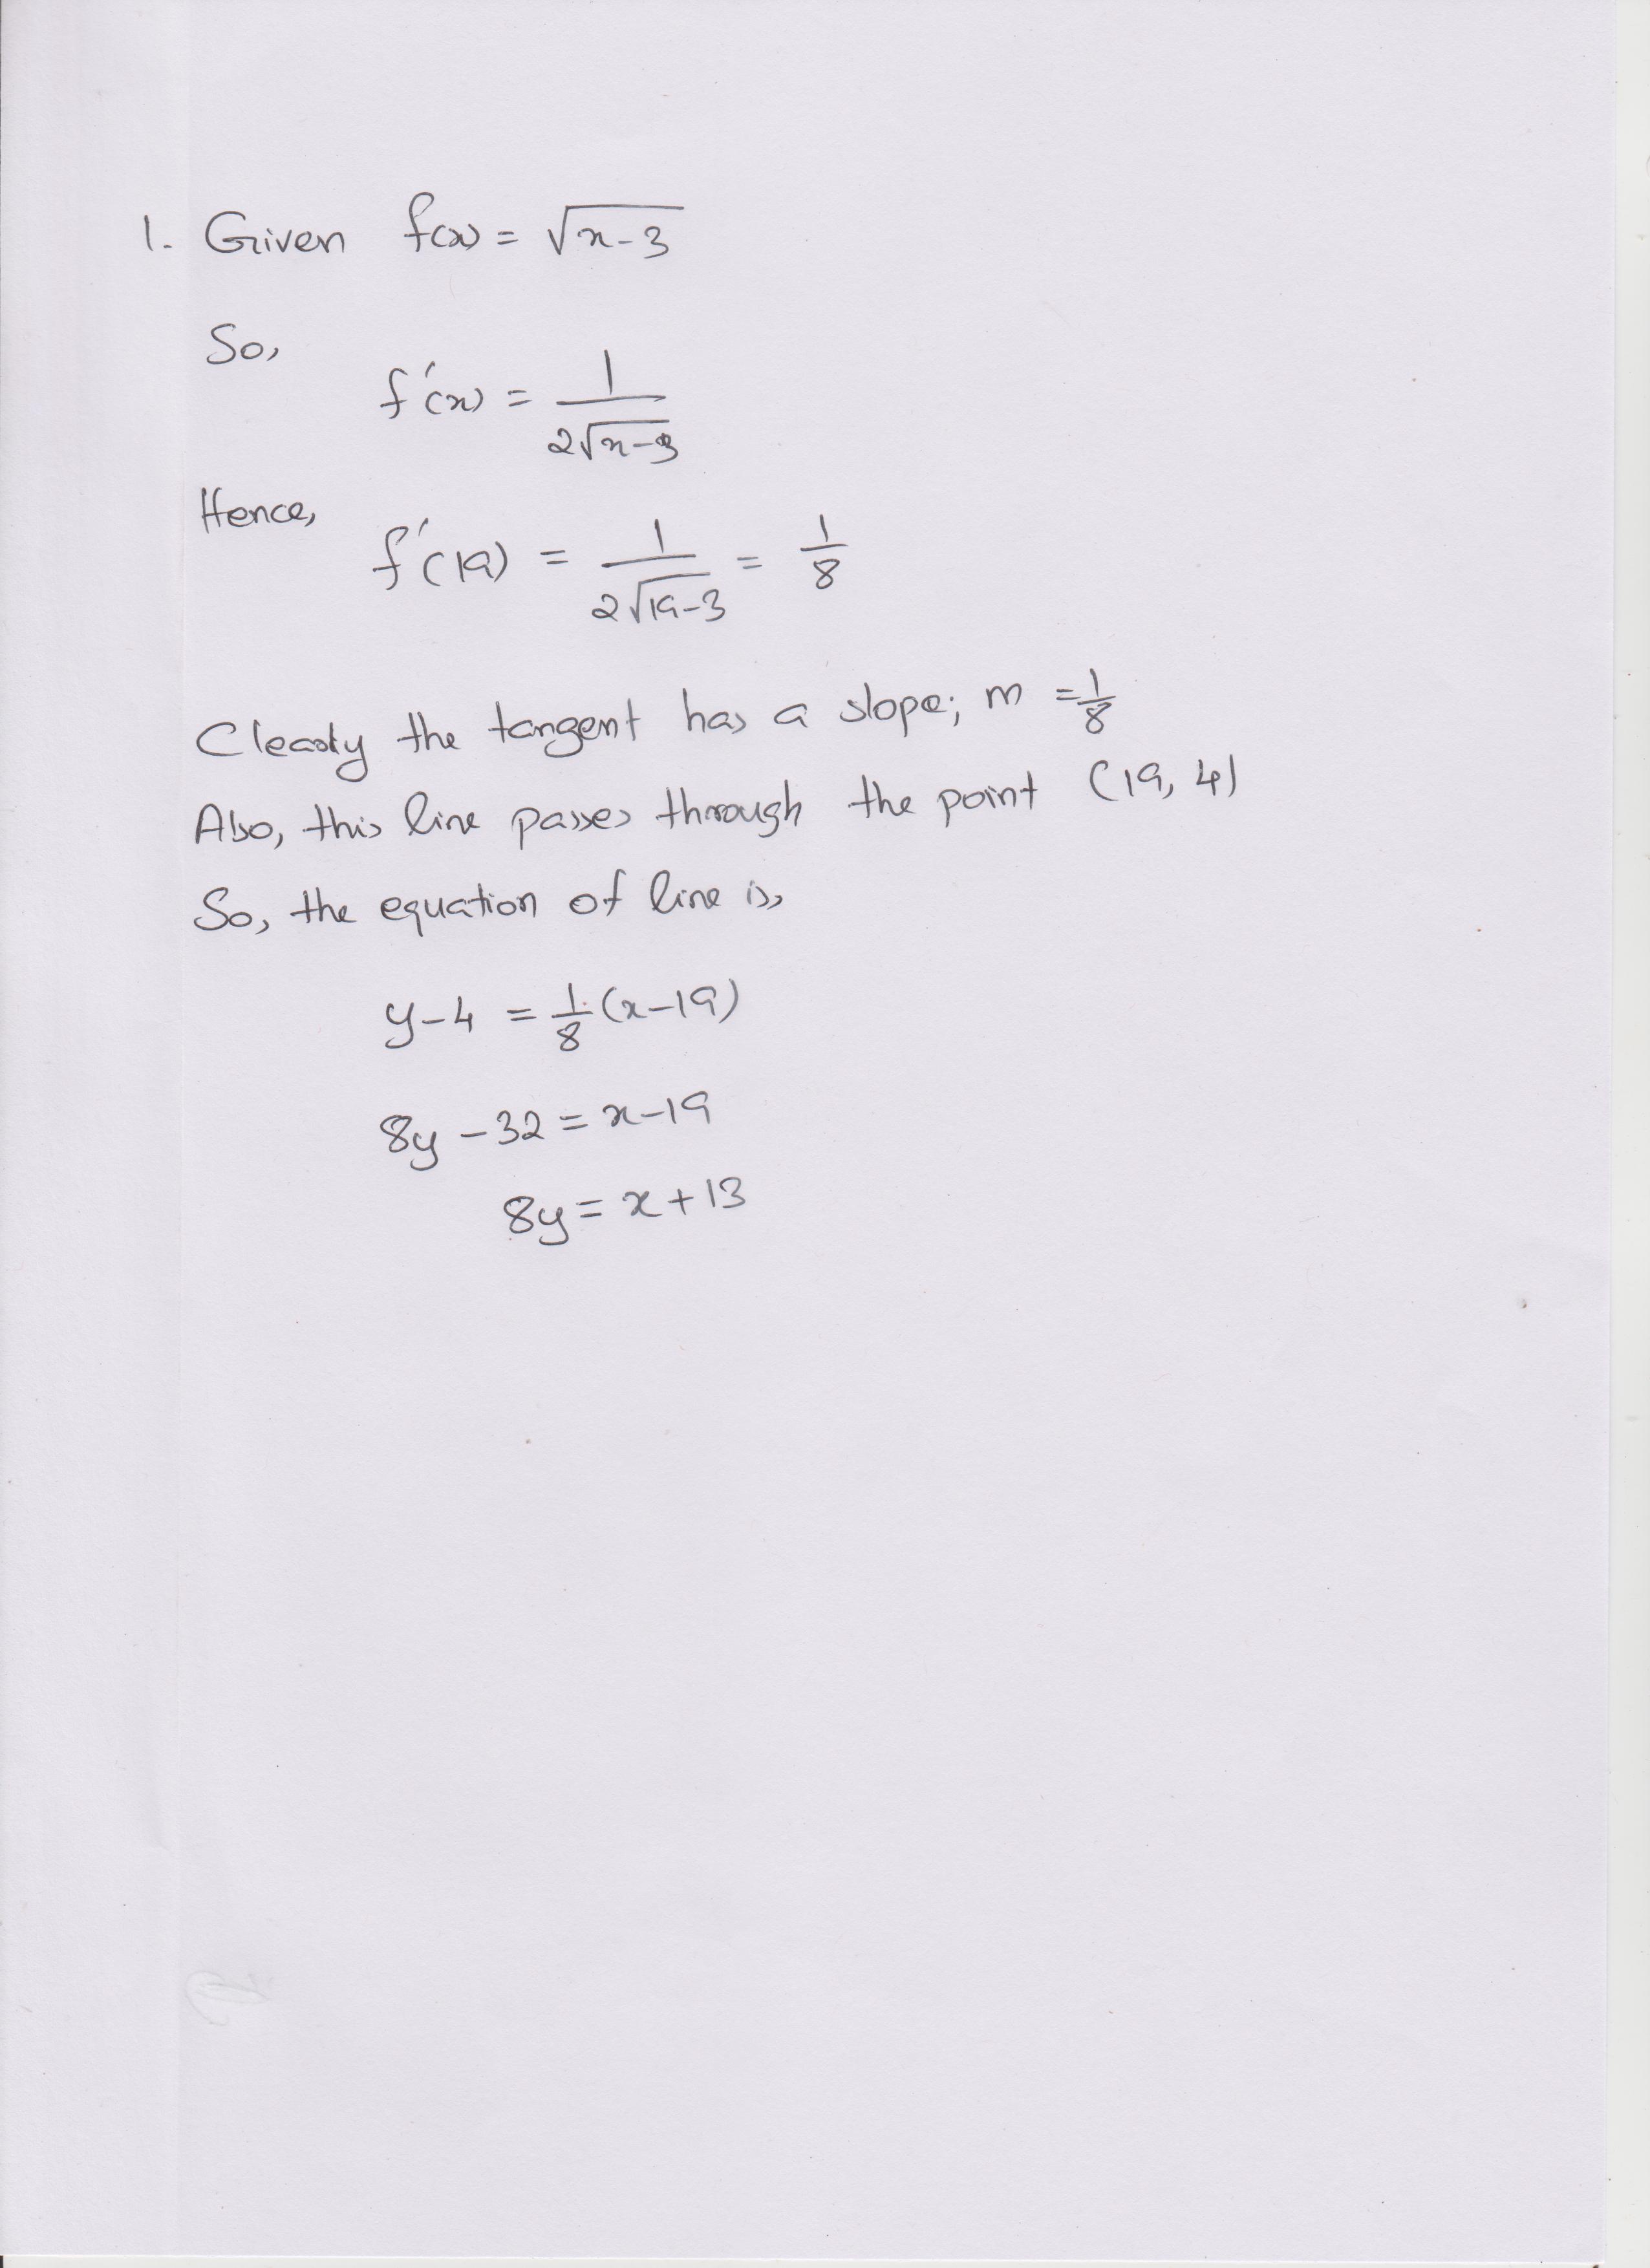 1. Given f(x) = √(x-3)
So,
f'(x) = 1/(2√(x-3))
Hence,
f'(19) = 1/(2√(19-3)) = 1/8
Clearly the tangent has a slope; m = 1/8
Also, this line passes through the point (19, 4)
So, the equation of line is,
y-4 = 1/8 (x-19)
8y - 32 = x-19
8y = x+13